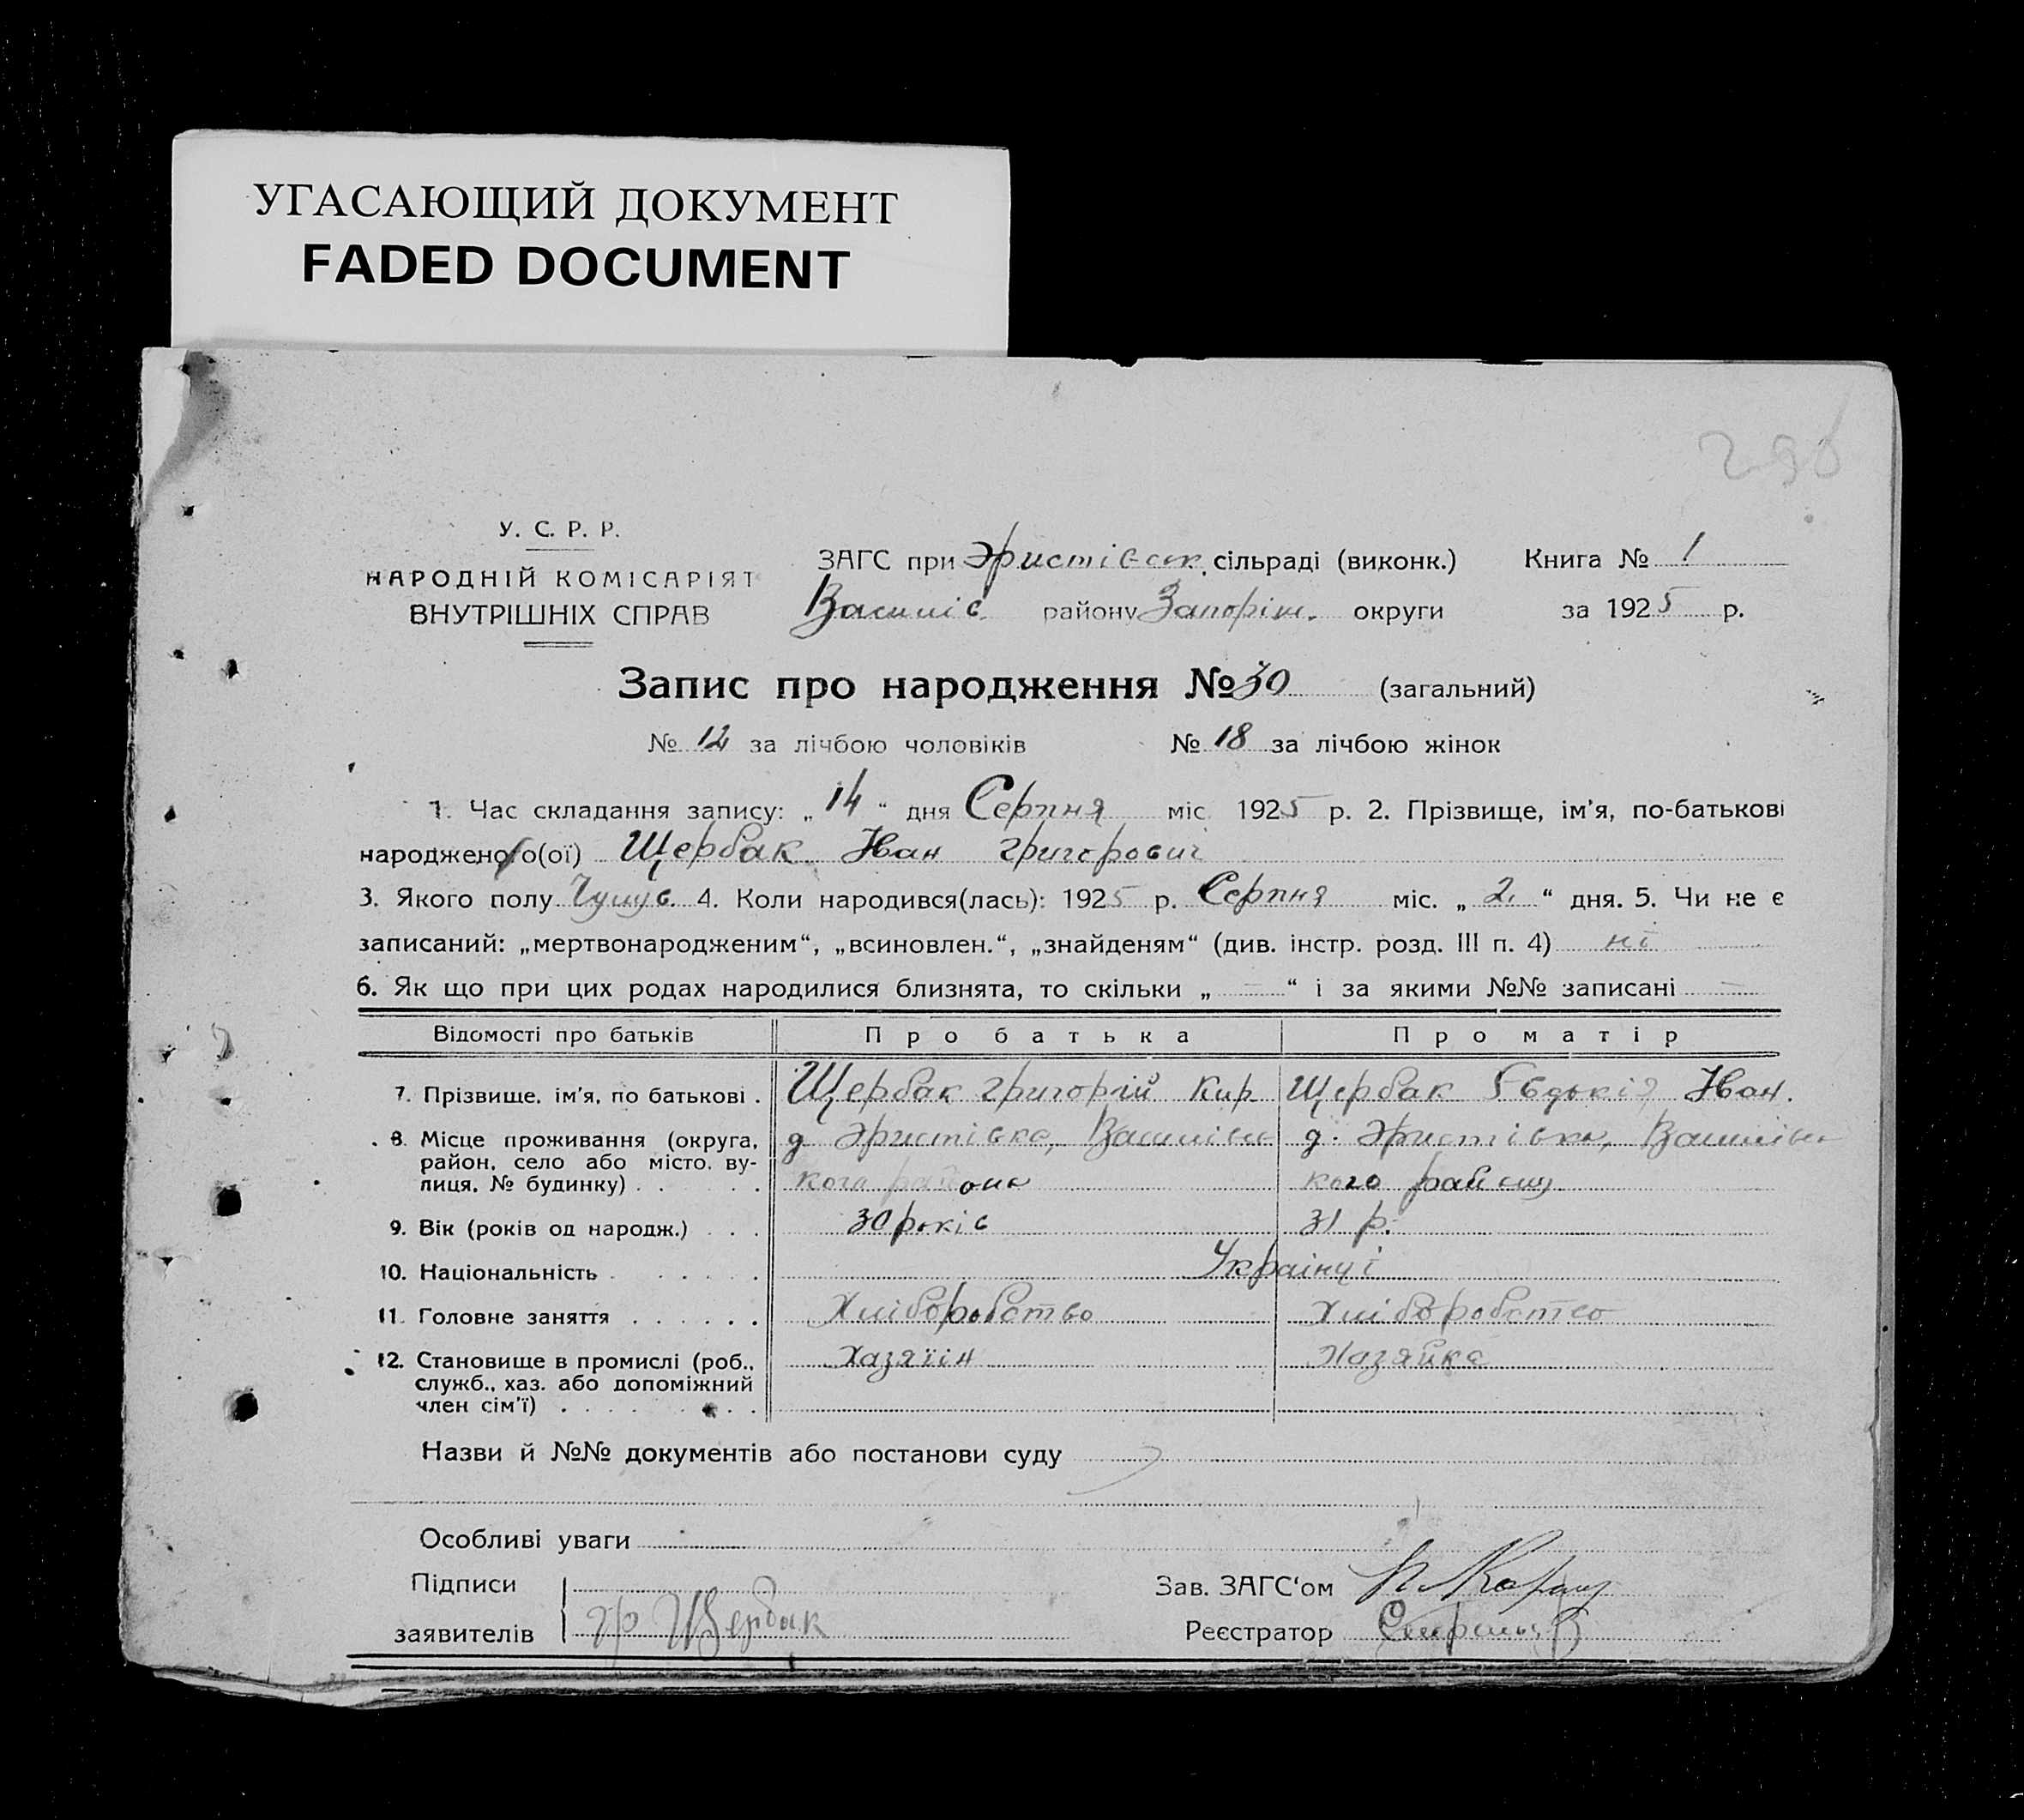 УГАСАЮЩИЙ ДОКУМЕНТ
FADED DOCUMENT
У. С. Р. Р.
НАРОДНІЙ КОМІСАРІЯТ
ВНУТРІШНІХ СПРАВ
ЗАГС при Эристівськ. сільраді (виконк.) Книга № 1
Василів. району Запоріж. округи за 1925 р.
Запис про народження № 30 (загальний)
№ 12 за лічбою чоловіків № 18 за лічбою жінок
1. Час складання запису: „14“ дня Серпня міс. 1925 р. 2. Прізвище, ім'я, по-батькові
народженого(ої) Щербак Іван Григорович
3. Якого полу 4. Коли народився(лась): 1925 р. Серпня міс. „2.“ дня. 5. Чи не є
записаний: „мертвонародженим“, „всиновлен.“, „знайденям“ (див. інстр. розд. III п. 4) ні
6. Як що при цих родах народилися близнята, то скільки „ — “ і за якими №№ записані —
Відомості про батьків Про батька Про матір
7. Прізвище, ім'я, по батькові . Щербак Григорій Кир Щербак Євдокія Іван.
8. Місце проживання (округа, район, село або місто, вулиця, № будинку) . . . . д Эристівка, Василівського района д. Эристівка, Василівського району
9. Вік (років од народж.) . . . 30 років 31 р.
10. Національність . . . . . . Українці
11. Головне заняття . . . . . . Хліборобство Хліборобство
12. Становище в промислі (роб., служб., хаз. або допоміжний член сім'ї) . . . . . . Хазяїін Хазяйка
Назви й №№ документів або постанови суду
Особливі уваги
Підписи Зав. ЗАГС'ом
заявителів гр Щербак Реєстратор